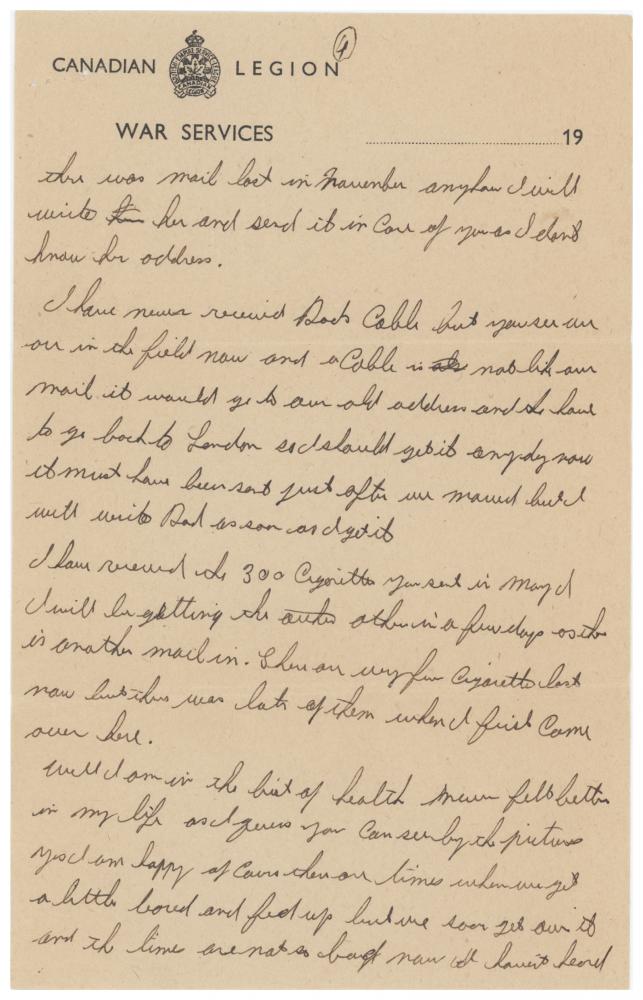 4
CANADIAN LEGION
WAR SERVICES
19
there was mail lost in November anyhow I will
write her and send it in Care of you as I don't
know her address.
I have never received Dad's Cable but you see we
are in the field now and a Cable is not like our
mail it would go to our old address and have
to go back to London so I should get it any day now
it must have been sent just after we moved but I
will write Dad as soon as I get it
I have received the 300 Cigarettes you sent in May
I will be getting the other in a few days as there
is another mail in. There are very few Cigarettes lost
now but there was lots of them when I first Came
over here.
Well I am in the best of health never felt better
in my life as I guess you Can see by the pictures
yes I am happy of Course there are times when we get
a little bored and fed up but we soon get over it
and the times are not so bad now I havent heard